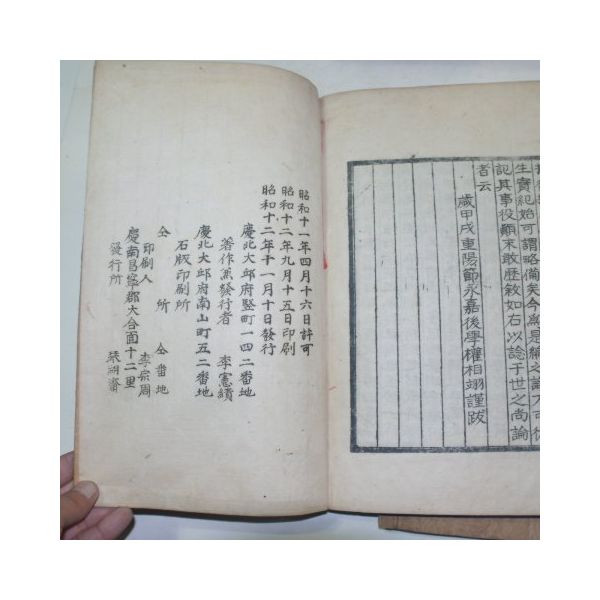 生實紀始可謂略備矣今爲是編之
記其事役顚末敢歷敘如右以諗于世之尚論
者云
歲甲戌重陽節永嘉後學權相翊謹跋
昭和十一年四月十六日許可
昭和十二年九月十五日印刷
昭和十二年十一月十日發行
慶北大邱府竪町一四二番地
著作兼發行者 李憲績
慶北大邱府南山町五二番地
石版印刷所
仝 所 仝番地
印刷人 李宗周
慶南昌寧郡大合面十二里
發行所 琴湖齋